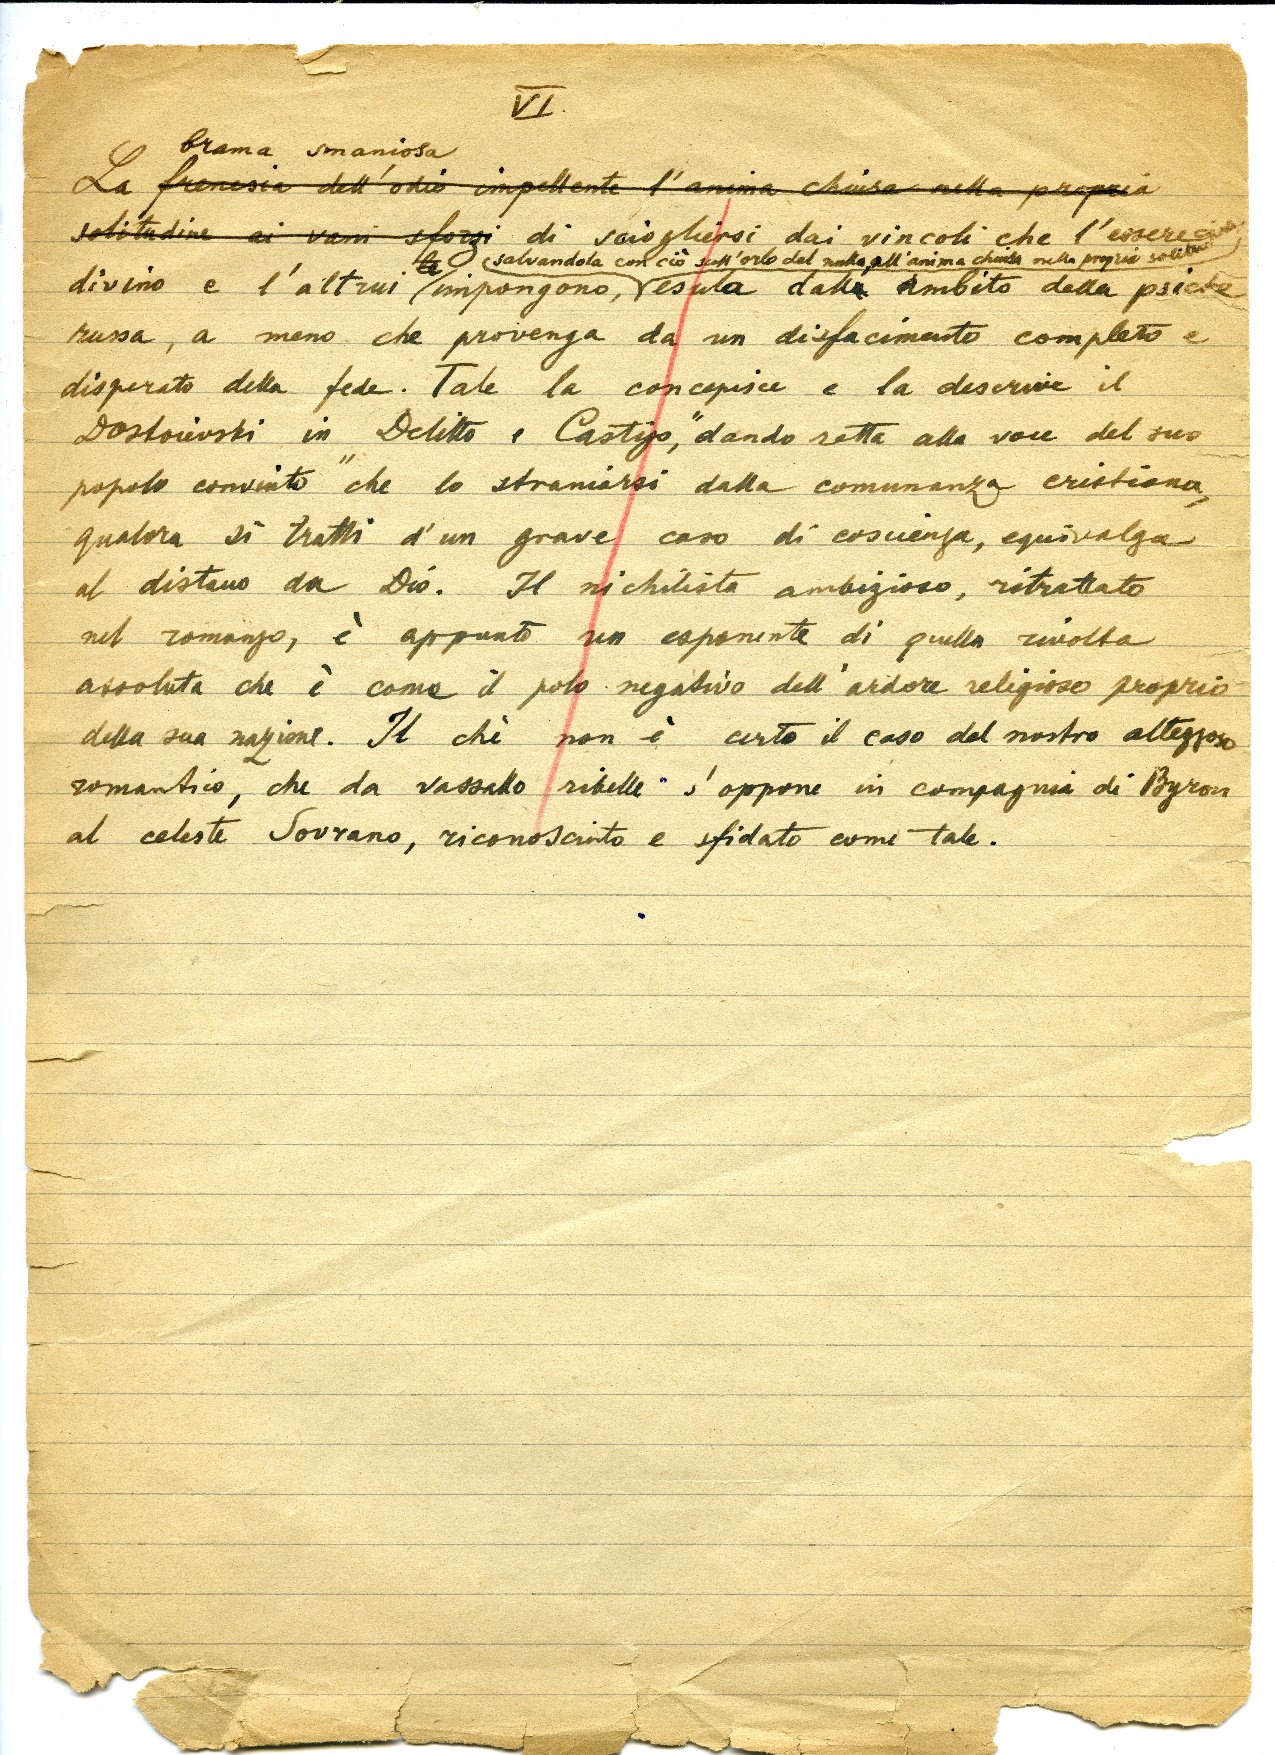 VI.
brama smaniosa
La frenesia dell'odio impellente l'anima chiusa nella propria
solitudine ai vani sforzi di sciogliersi dai vincoli che l'essere
salvandola con ciò sull'orlo del nulla, all'anima chiusa nella propria solitudine
divino e l'altrui impongono, esula dall' ambito della psiche
russa, a meno che provenga da un disfacimento completo e
disperato della fede. Tale la concepisce e la descrive il
Dostoievski in Delitto e Castigo, "dando retta alla voce del suo
popolo convinto" che lo straniarsi dalla comunanza cristiana,
qualora si tratti d'un grave caso di coscienza, equivalga
al distacco da Dio. Il nichilista ambizioso, ritrattato
nel romanzo, è appunto un esponente di quella rivolta
assoluta che è come il polo negativo dell'ardore religioso proprio
della sua nazione. Il chè non è certo il caso del nostro
romantico, che da vassallo ribelle s'oppone in compagnia di Byron
al celeste Sovrano, riconosciuto e sfidato come tale.